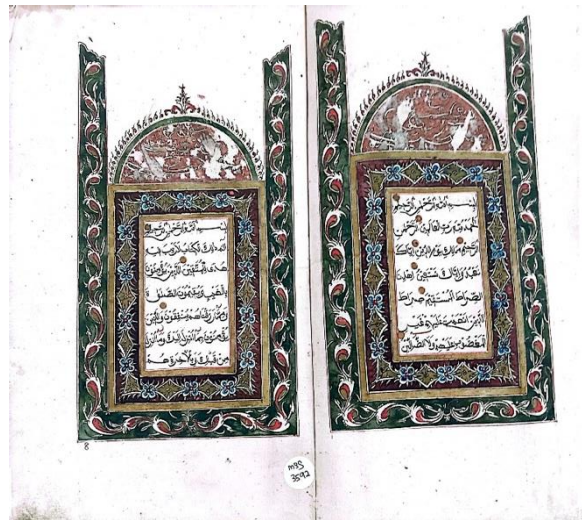 بسم الله الرحمن الرحيم
الحمد لله رب العالمين الرحمن
الرحيم ملك يوم الدين اياك
نعبد واياك نستعين اهدنا
الصراط المستقيم صراط
الذين انعمت عليهم غير
المغضوب عليهم ولا الضالين
بسم الله الرحمن الرحيم
الم ذلك الكتاب لا ريب فيه
هدى للمتقين الذين يؤمنون
بالغيب ويقيمون الصلوة
ومما رزقناهم ينفقون والذين
يؤمنون بما انزل اليك وما انزل
من قبلك وبالاخرة هم
8
MBS
3592